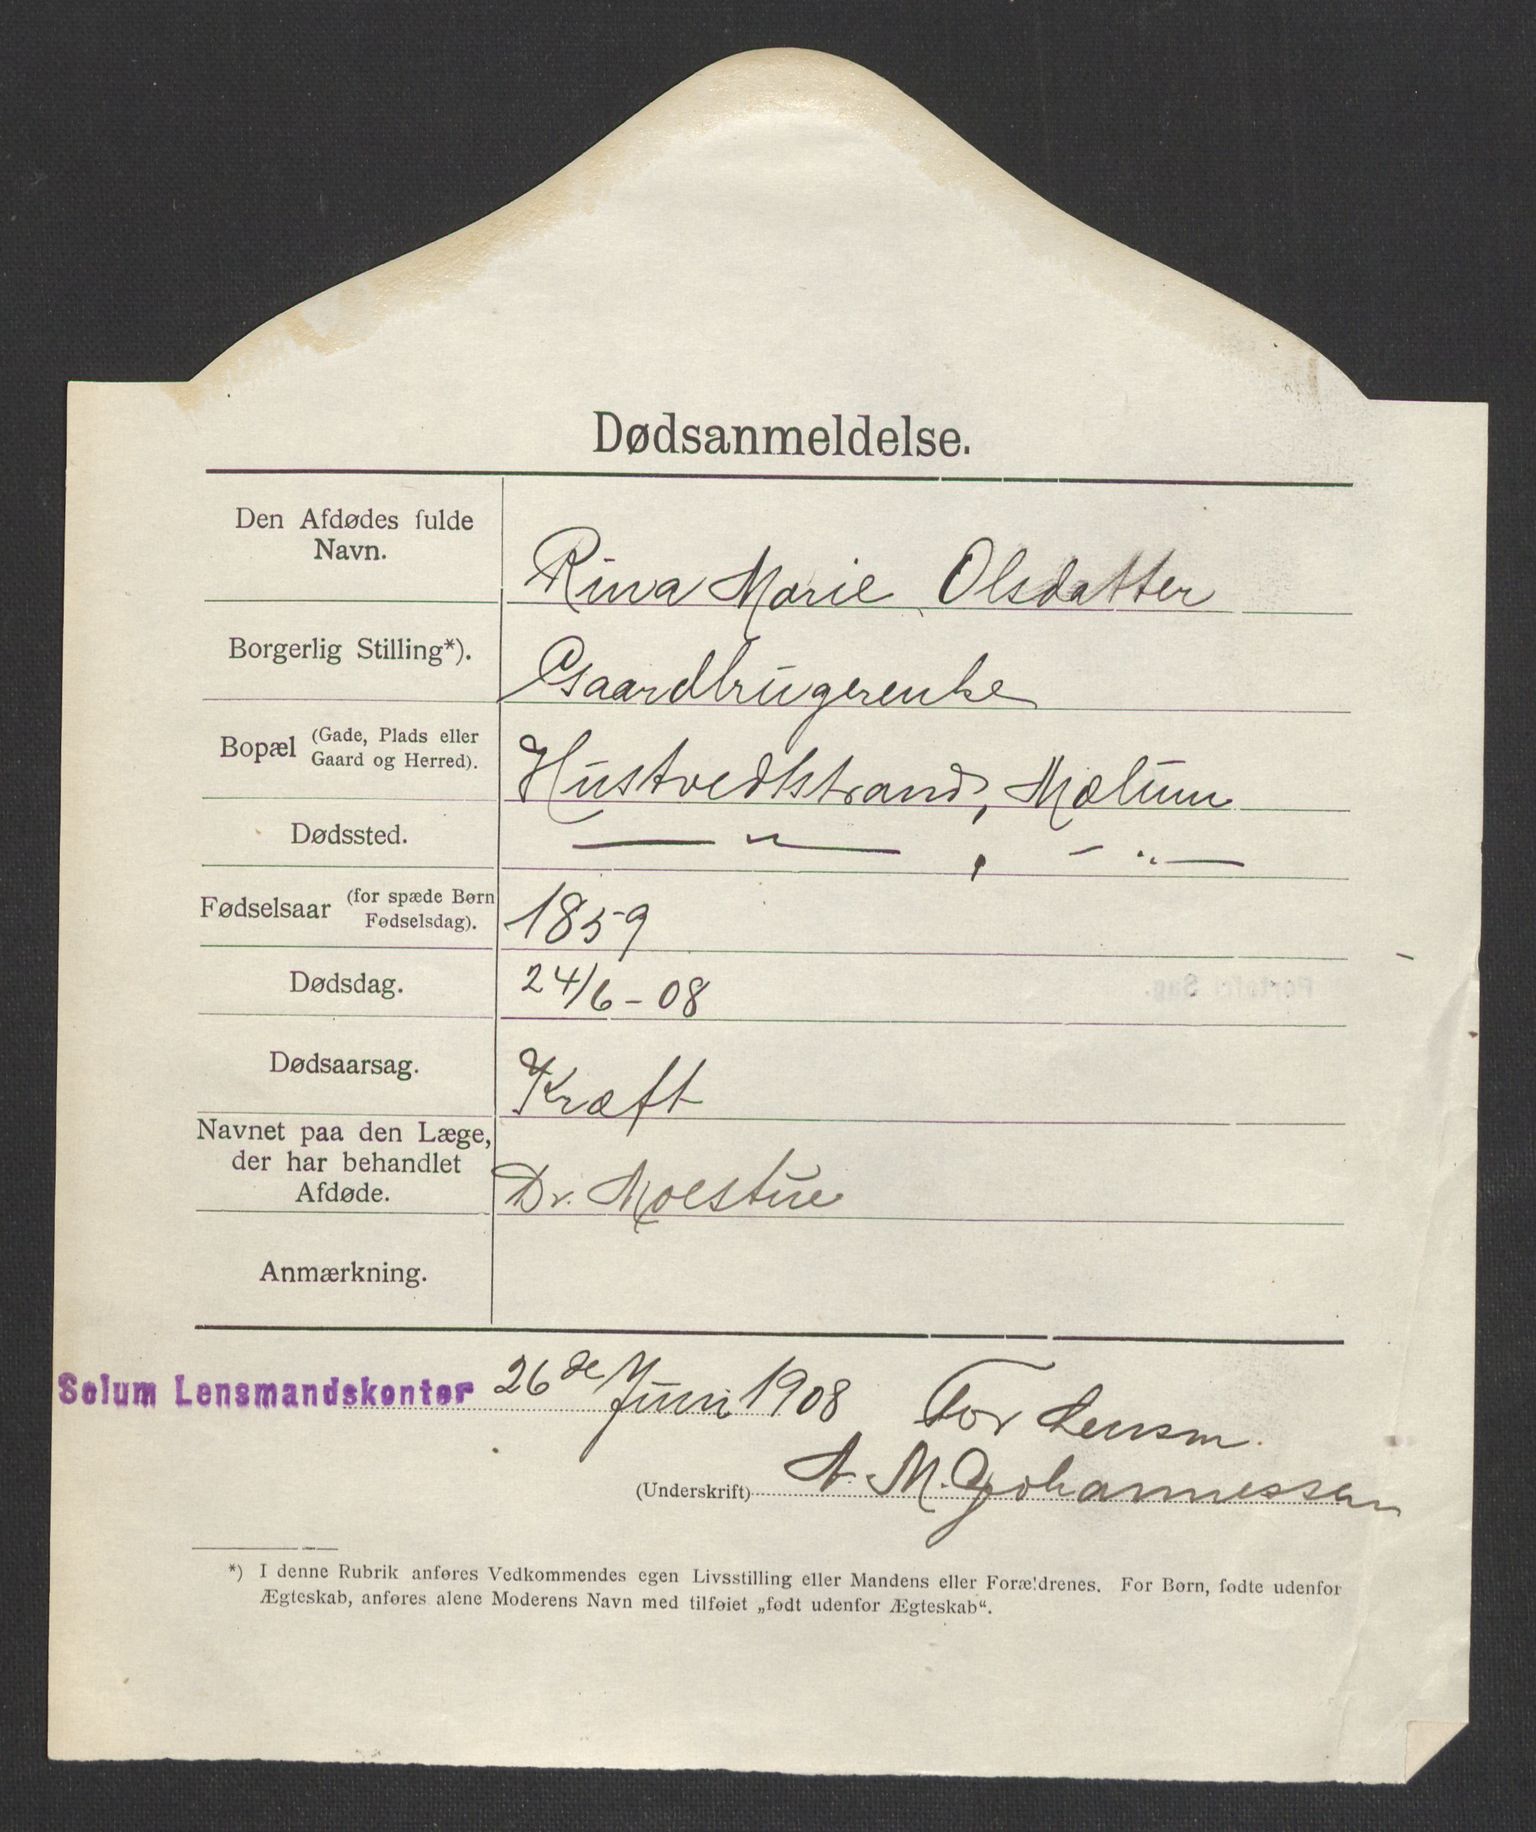 Dødsanmeldelse.
Den Afdødes fulde
Navn.
Rina Marie Olsdatter
Borgerlig Stilling*).
Gaardbrugerenke
Bopæl (Gade, Plads eller
Gaard og Herred).
Hustvedtstrand, Mælum
Dødssted.
— " — , - " —
Fødselsaar (for spæde Børn
Fødselsdag).
1859
Dødsdag.
24/6 - 08
Dødsaarsag.
Kræft
Navnet paa den Læge,
der har behandlet
Afdøde.
Dr. Moestue
Anmærkning.
Portofri Sag.
Solum Lensmandskontor 26de Juni 1908 For Lensm.
(Underskrift) N. M. Johannessen
*) I denne Rubrik anføres Vedkommendes egen Livsstilling eller Mandens eller Forældrenes. For Børn, fødte udenfor
Ægteskab, anføres alene Moderens Navn med tilføiet „født udenfor Ægteskab“.